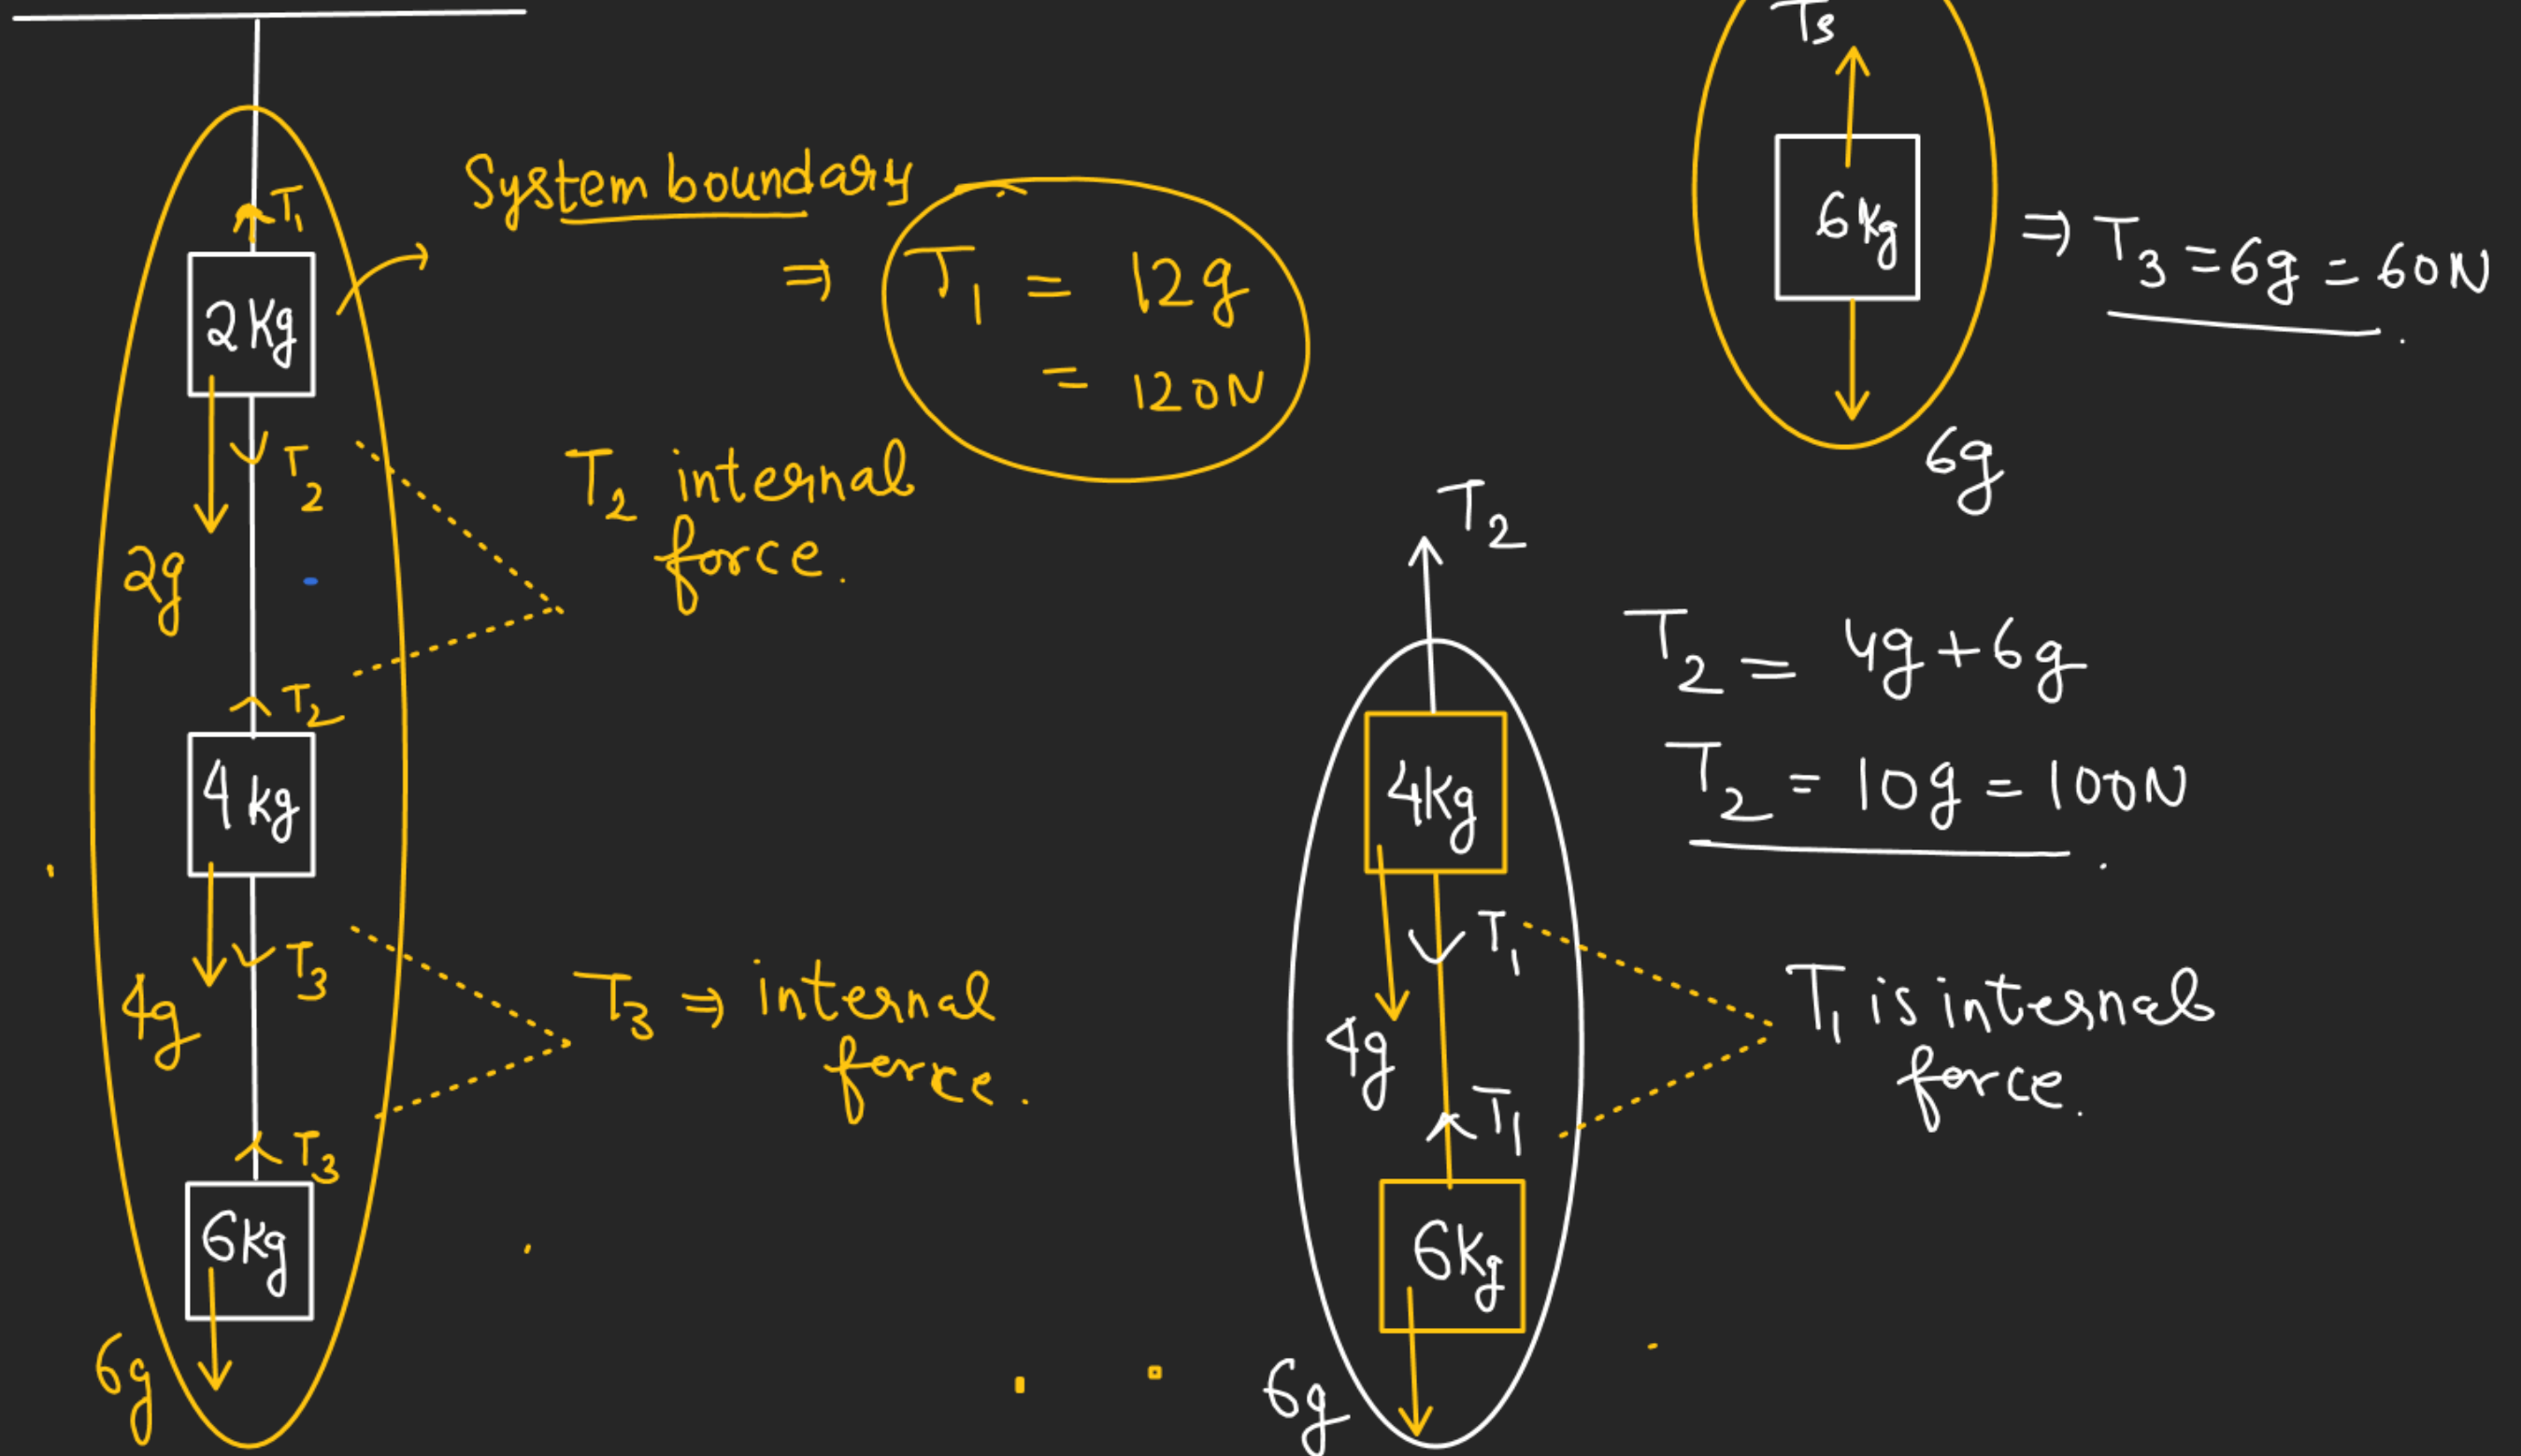 T₁
2Kg
T₂
2g
T₂
4kg
T₃
4g
T₃
6kg
6g
System boundary
⇒ T₁ = 12g
= 120N
T₂ internal
force.
T₃ ⇒ internal
force.
T₃
6kg
⇒ T₃ = 6g = 60N
6g
T₂
4kg
T₁
4g
T₁
6kg
6g
T₂ = 4g + 6g
T₂ = 10g = 100N
T₁ is internal
force.